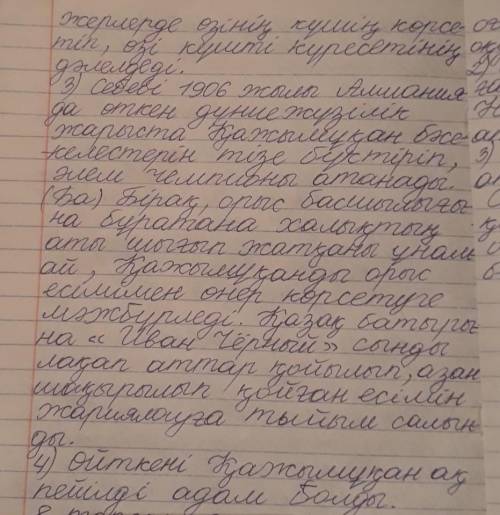 жерлерде өзінің күшің көрсе-
тіп, өзі күшті күресетінің
дәлелдеді.
3) Себебі 1906 жылы Алмания
да өткен дүниежүзілік
жарыста Қажымұқан бәсе-
келестерін тізе бүктіріп,
әлем чемпионы атанады.
(Ба) Бірақ, орыс басшылығы-
на бұратана халықтың
аты шығып жатқаны ұнам-
ай, Қажымұқанды орыс
есімімен өнер көрсетуге
мәжбүрледі. Қазақ батыры-
на «Иван Чёрный» сынды
лақап аттар қойылып, азан
шақырылып қойған есімін
жариялауға тыйым салын-
ды.
4) Өйткені Қажымұқан ақ
пейілді адам болды.